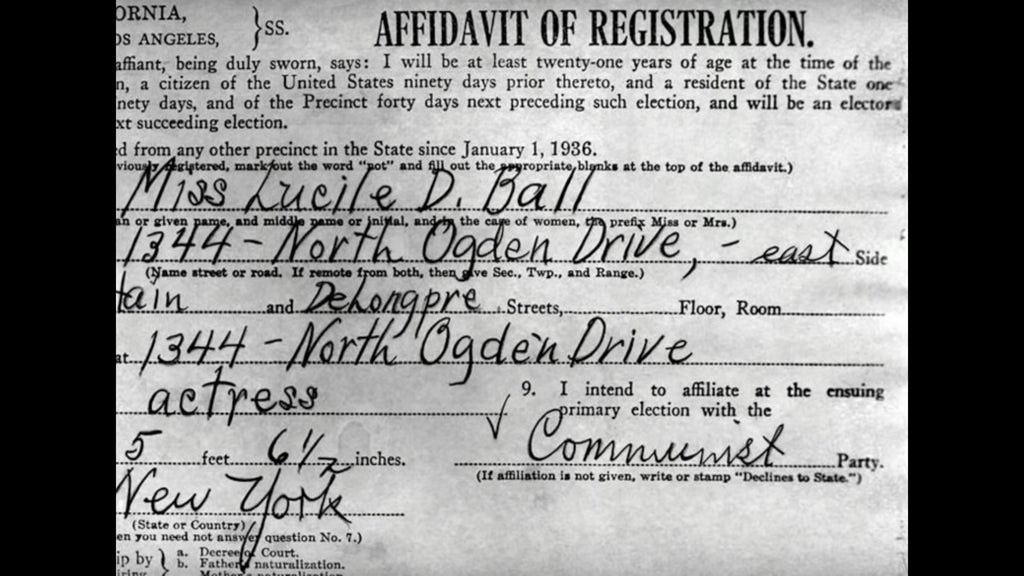 ORNIA,
OS ANGELES, } SS.
AFFIDAVIT OF REGISTRATION.
affiant, being duly sworn, says: I will be at least twenty-one years of age at the time of the
n, a citizen of the United States ninety days prior thereto, and a resident of the State one
nety days, and of the Precinct forty days next preceding such election, and will be an elector
xt succeeding election.
d from any other precinct in the State since January 1, 1936.
viously registered, mark out the word "not" and fill out the appropriate blanks at the top of the affidavit.)
Miss Lucile D. Ball
an or given name, and middle name or initial, and in the case of women, the prefix Miss or Mrs.)
1344 - North Ogden Drive, - east Side
(Name street or road. If remote from both, then give Sec., Twp., and Range.)
tain and DeLongpre Streets, Floor, Room
at 1344 - North Ogden Drive
actress
9. I intend to affiliate at the ensuing
primary election with the
✓ Communist Party.
(If affiliation is not given, write or stamp "Declines to State.")
5 feet 6 1/2 inches.
New York
(State or Country)
en you need not answer question No. 7.)
ip by } a. Decree of Court.
b. Father's naturalization.